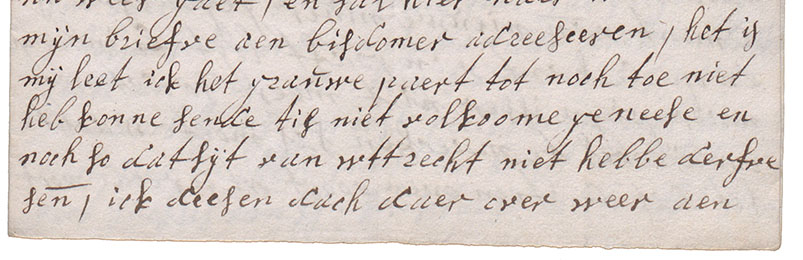 mijn briefve aen bisdomer adreeseeren, het is
mij leet ick het grauwe paert tot noch toe niet
heb konne sende tis niet volkoome geneese en
noch so dat sijt van wttrecht niet hebbe derfve
sen̅, ick deesen dach daer over weer aen